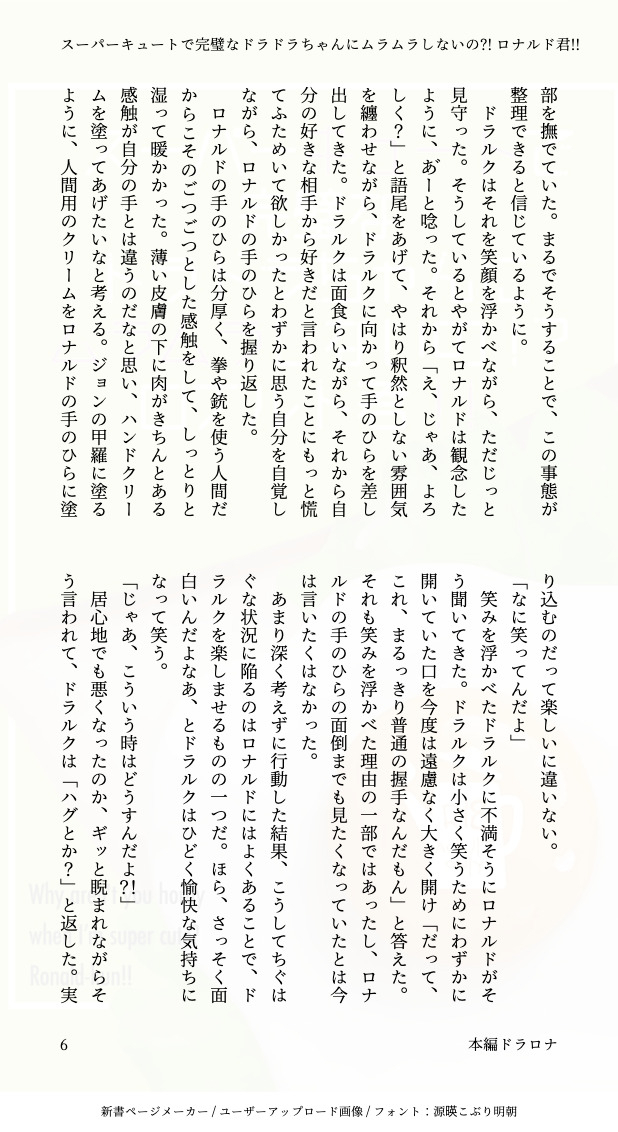 スーパーキュートで完璧なドラドラちゃんにムラムラしないの?! ロナルド君!!
部を撫でていた。まるでそうすることで、この事態が
整理できると信じているように。
ドラルクはそれを笑顔を浮かべながら、ただじっと
見守った。そうしているとやがてロナルドは観念した
ように、あ゛ーと唸った。それから「え、じゃあ、よろ
しく？」と語尾をあげて、やはり釈然としない雰囲気
を纏わせながら、ドラルクに向かって手のひらを差し
出してきた。ドラルクは面食らいながら、それから自
分の好きな相手から好きだと言われたことにもっと慌
てふためいて欲しかったとわずかに思う自分を自覚し
ながら、ロナルドの手のひらを握り返した。
ロナルドの手のひらは分厚く、拳や銃を使う人間だ
からこそのごつごつとした感触をして、しっとりと
湿って暖かかった。薄い皮膚の下に肉がきちんとある
感触が自分の手とは違うのだなと思い、ハンドクリー
ムを塗ってあげたいなと考える。ジョンの甲羅に塗る
ように、人間用のクリームをロナルドの手のひらに塗
り込むのだって楽しいに違いない。
「なに笑ってんだよ」
笑みを浮かべたドラルクに不満そうにロナルドがそ
う聞いてきた。ドラルクは小さく笑うためにわずかに
開いていた口を今度は遠慮なく大きく開け「だって、
これ、まるっきり普通の握手なんだもん」と答えた。
それも笑みを浮かべた理由の一部ではあったし、ロナ
ルドの手のひらの面倒までも見たくなっていたとは今
は言いたくはなかった。
あまり深く考えずに行動した結果、こうしてちぐは
ぐな状況に陥るのはロナルドにはよくあることで、ド
ラルクを楽しませるものの一つだ。ほら、さっそく面
白いんだよなあ、とドラルクはひどく愉快な気持ちに
なって笑う。
「じゃあ、こういう時はどうすんだよ?!」
居心地でも悪くなったのか、ギッと睨まれながらそ
う言われて、ドラルクは「ハグとか？」と返した。実
Why aren't you horny
when I'm super cute
Ronald-kun!!
6
本編ドラロナ
新書ページメーカー / ユーザーアップロード画像 / フォント：源暎こぶり明朝